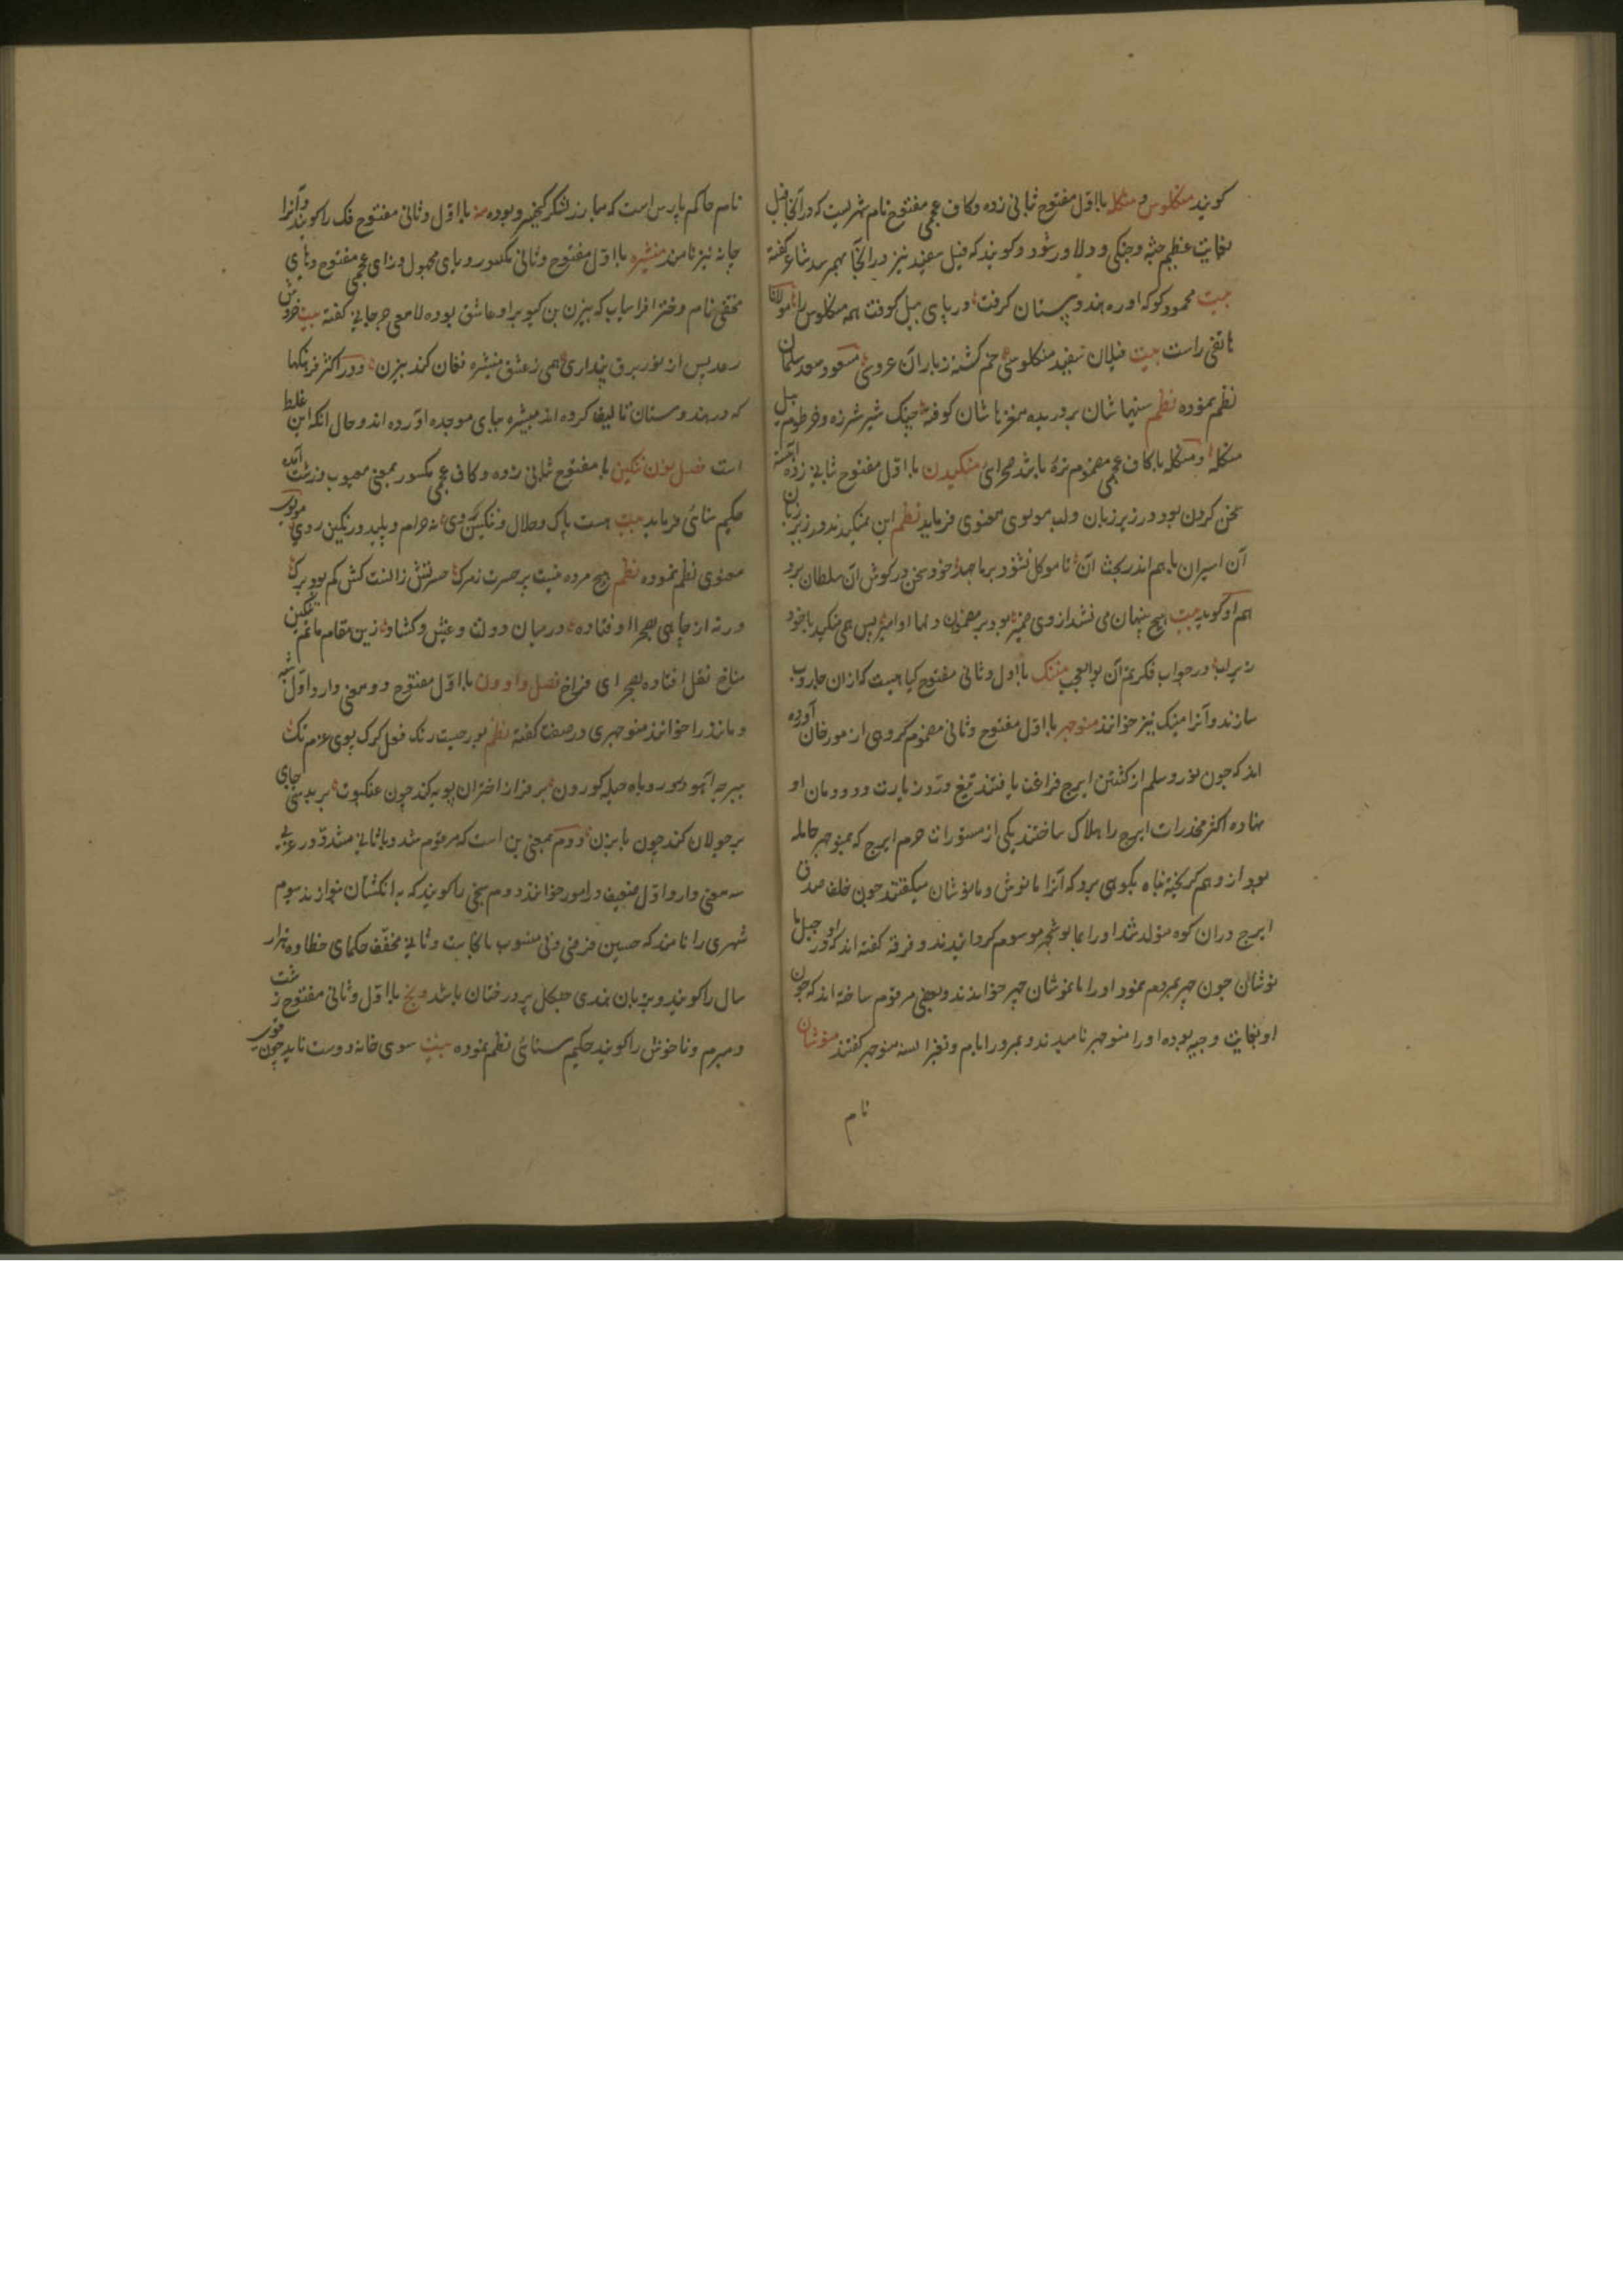 کویند منکلوس و منکله بااول مفتوح ثبانی زده وکاف عجمی مفتوح نام شهریست که در آنجا فیل
بغایت عظیم جثه وجنکی و دلاور شود وکویند که فیل سفید نیز در آنجا بهم رسد شاعر کفته
بیت محمود کو که اوره هندوستان کرفت در پای پیل کوفت همه منکلوس را مولانا
هاتفی راست بیت فیلان سفید منکلوسی خم کشته زبار آن عروسی مسعود سعد سلمان
نظم نموده نظم سنهاشان بردریده مغزهاشان کوفته چنک شیر شرزه وخرطوم پیل
منکله و منکله باکاف عجمی مضموم نزه باشد صحرائی منکیدن بااول مفتوح ثبانی زده آهسته
سخن کردن بود در زیر زبان ولب مولوی معنوی فرماید نظم این نمنکیدند در زیر زبان
آن اسیران باهم اندر بحث آن تا موکل نشنود برما جهد خود سخن در کوش آن سلطان برد
هم او کوید بیت هیچ پنهان می نشد از وی ضمیر بود بر مضمون دلها او امیر پس همی منکید باخود
زیر لب در جواب فکرتم آن بوالعجب مننک بااول وثانی مفتوح کیاهیست که ازان جاروب
سازند وآنرا مینک نیز خوانند منوجهر بااول مفتوح وثانی مضموم کروهی از مورخان آورده
اند که چون تور وسلم از کشتن ایرج فراغت یافتند تیغ دردرزیات ودودمان او
نهاده اکثر مخدرات ایرج را هلاک ساختند یکی از مستورات حرم ایرج که بمنوجهر حامله
بود از وهم کریخته پناه بکوهی برد که آنرا مانوش و مانوشان میکفتند چون خلف صدق
ایرج دران کوه متولد شد اورا بمانوشجهر موسوم کردانیدند و فرقه کفته اند که در جبل ما
نوشان چون چهر بمردم نمود اورا مانوشان چهر خواندند وبعضی مرقوم ساخته اند که چون
او بغایت وجیه بوده اورا منوجهر نامیدند و بمرور ایام وتغیر السنه منوجهر کفتند منوشان
نام
نام حاکم پارس است که مبارز لشکر کیخسرو بوده منه بااول وثانی مفتوح فک را کویند وآنرا
چانه نیز نامند منیژه بااول مفتوح وثانی مکسور ویای مجهول وزای عجمی مفتوح وهای
مختفی نام دختر افراسیاب که بیزن بن کیو براو عاشق بوده لامعی جرجانی کفته بیت خروش
رعد پس از نور برق پنداری همی زعشق منیژه فغان کند بیزن و در اکثر فرهنکها
که در هندوستان تالیف کرده اند مبیژه ببای موحده آورده اند وحال آنکه این غلط
است فصل نون ننکین با مفتوح ثبانی زده وکاف عجمی مکسور بمعنی معیوب وزشت آمده
حکیم سنائی فرماید بیت هست پاک وحلال وننکین روی نه حرام وپلید ورنکین روی مولوی
معنوی نظم نموده نظم هیچ مرده نیست پر حسرت زمرک حسرتش زآنست کش کم بود برک
ورنه از چاهی بصحرا اوفتاد در میان دولت وعیش وکشاد زین مقام ماتم ننکین
مناخ نقل افتاد بصحرای فراخ فصل واو ون بااول مفتوح دو معنی دارد اول شبه
ومانند را خوانند منوجهری در صفت کفته نظم
ببرجه آهو دو روباه حیله کور دون
برجولان کند چون بابزن دوم بمعنی بن است که مرقوم شد وباثانی مشدد در عربی
سه معنی دارد اول ضعیف در امور خوانند دوم سنجی را کویند که بانکشتان نوازند سوم
شهری را نامند که حسین فرضی ونی منسوب بانجاست وثانی مخفف حکمای خطا ده هزار
سال را کویند وبزبان هندی جنکل پر درختان باشد ونج بااول وثانی مفتوح زشت
ومبرم وناخوش را کویند حکیم سنائی نظم نموده بیت سوی خانه دوست ناید چون قوی